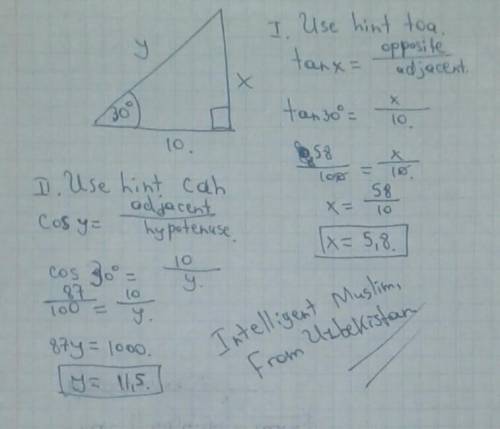 y
x
30°
10.
I. Use hint toa.
tan x = opposite / adjacent.
tan 30° = x / 10.
58 / 100 = x / 10.
x = 58 / 10
x = 5,8.
II. Use hint cah
cos y = adjacent / hypotenuse.
cos 30° = 10 / y.
87 / 100 = 10 / y.
87y = 1000.
y = 11,5.
Intelligent Muslim,
From Uzbekistan